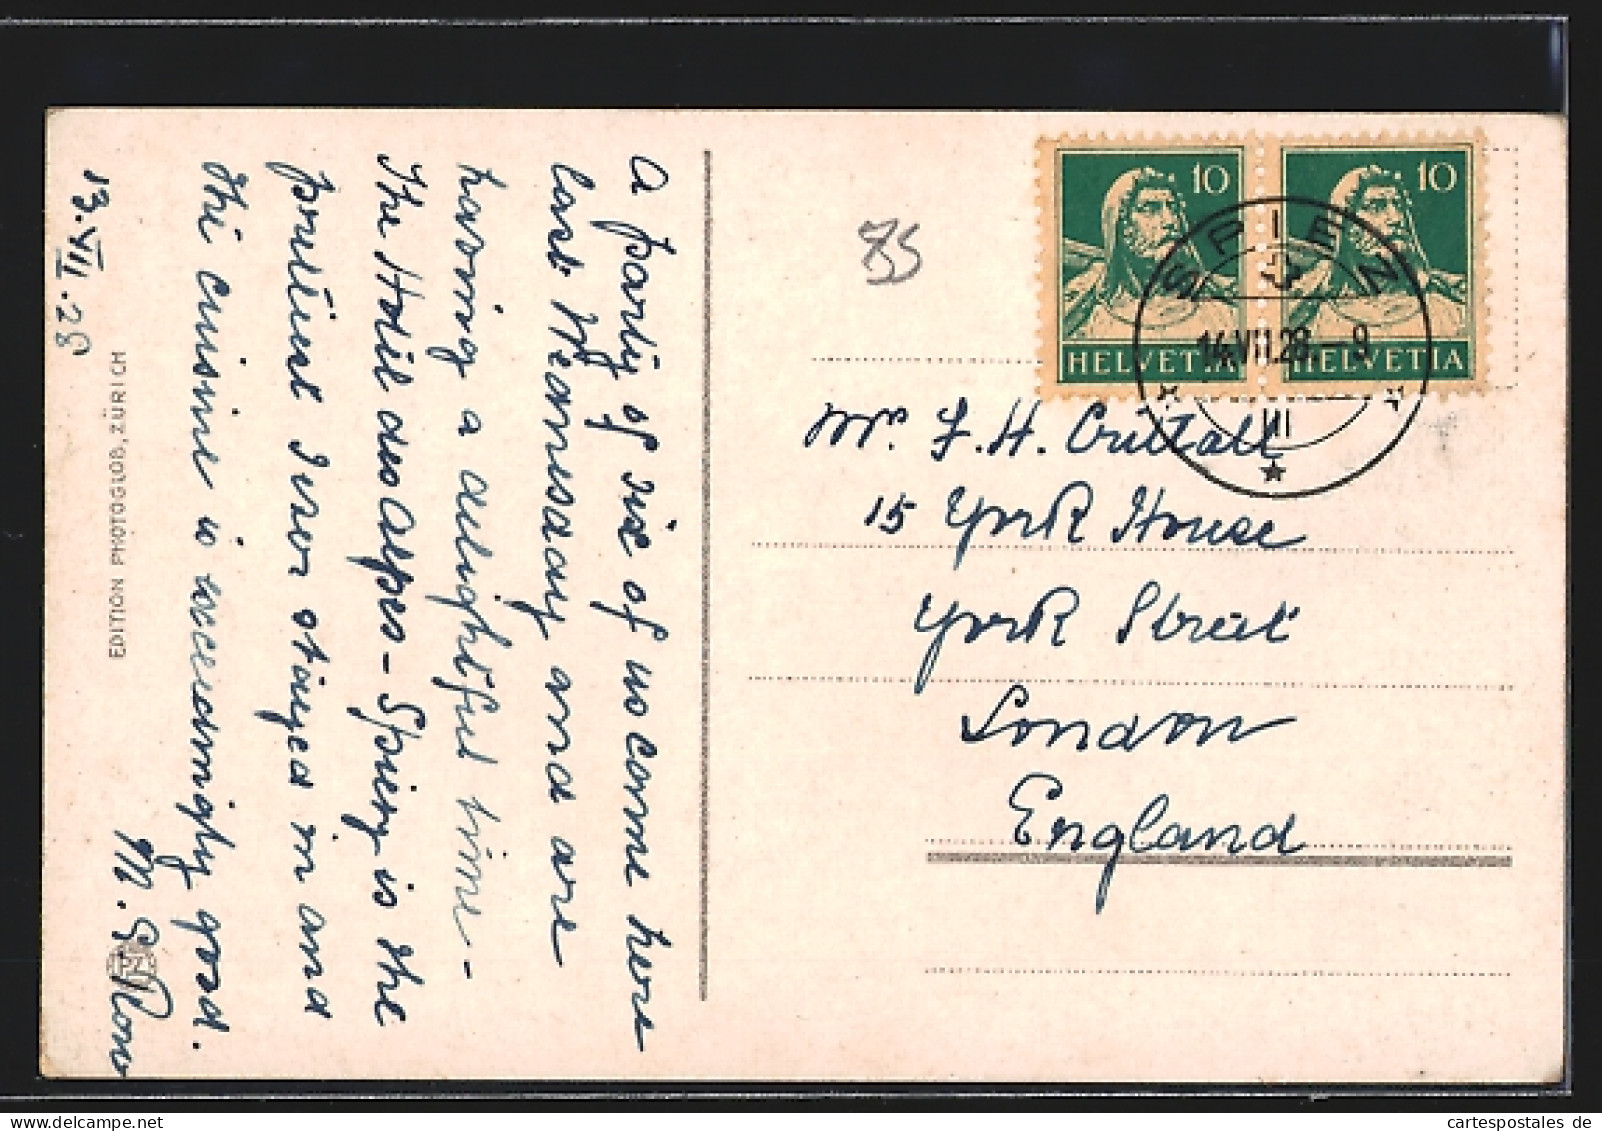 A party of six of us came here
last Wednesday and are
having a delightful time -
The Hotel des Alpes - Spiez is the
prettiest I ever stayed in and
the cuisine is exceedingly good.
13.VII.28
EDITION PHOTOGLOB, ZÜRICH
75
10
HELVETIA
10
HELVETIA
SPIEZ
14.VII.28.-9
III
Mr. F. H. Crittall
15 York House
York Street
London
England
cartespostales de